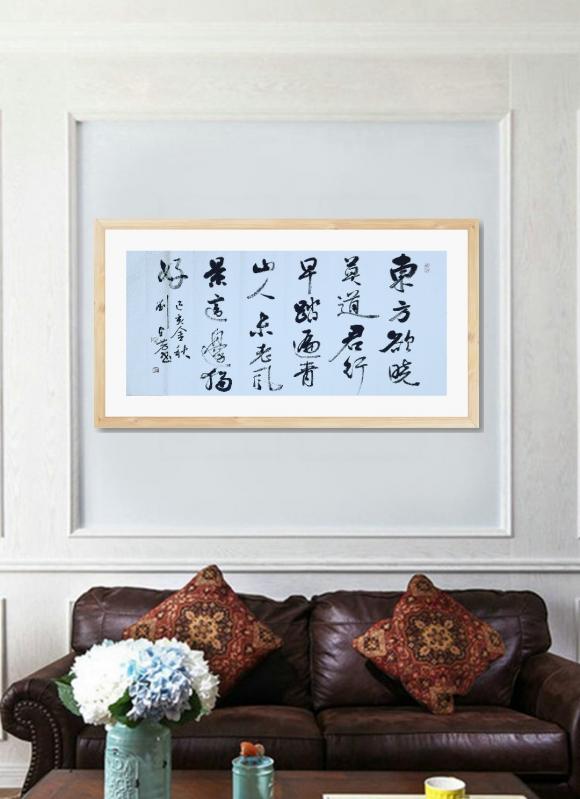 東方欲晓
莫道君行
早踏遍青
山人未老風
景這邊獨
好
己亥金秋